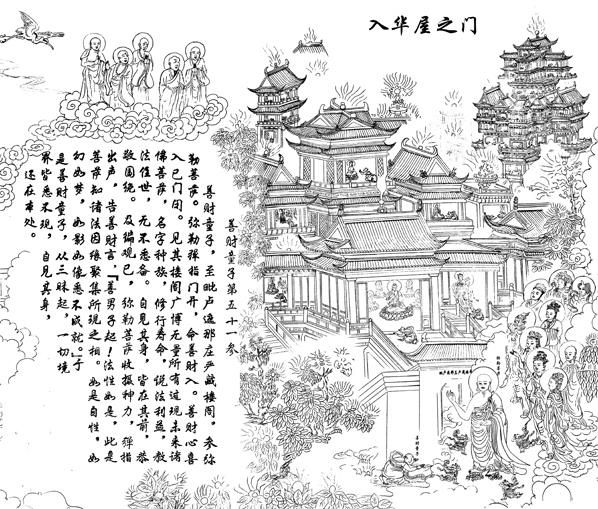 入华屋之门
善财童子第五十一参
善财童子,至毗卢遮那庄严藏楼阁,参弥
勒菩萨。弥勒弹指门开,命善财入。善财心喜
入已门闭。见其楼阁广博无量所有过现未来诸
佛菩萨,名字种族,修行寿命,说法利益,教
法住世,无不悉咨。自见其身,皆在其前,恭
敬围绕。及遍观已,弥勒菩萨收摄神力,弹指
出声,告善财言,「善男子起!法性如是,此是
菩萨知诸法因缘聚集所现之相。如是自性,如
幻如梦,如影如像悉不成就。」于
是善财童子,从三昧起,一切境
界皆悉不现,自见其身,
还在本处。